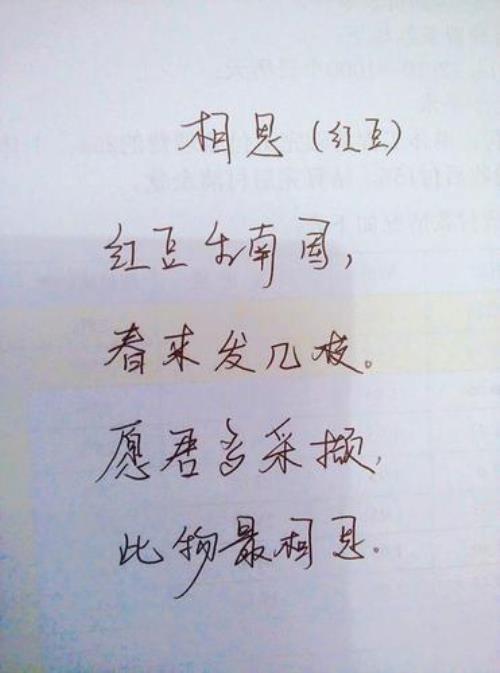 相思（红豆）
红豆生南国，
春来发几枝。
愿君多采撷，
此物最相思．